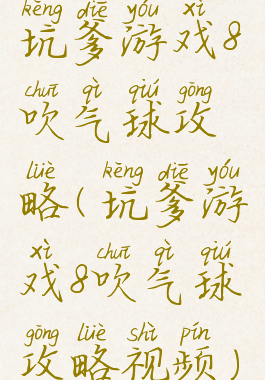 kēng diē yóu xì
坑爹游戏8
chuī qì qiú gōng
吹气球攻
lüè kēng diē yóu
略(坑爹游
xì chuī qì qiú
戏8吹气球
gōng lüè shì pín
攻略视频)